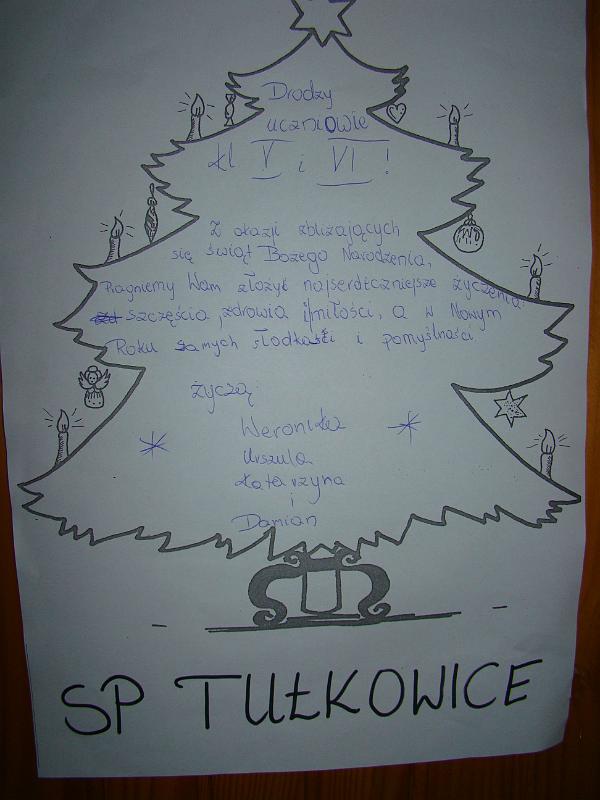 Drodzy
uczniowie
kl V i VI !
Z okazji zbliżających
się świąt Bożego Narodzenia,
Pragniemy Wam złożyć najserdeczniejsze życzenia
szczęścia, zdrowia i miłości, a w Nowym
Roku samych słodkości i pomyślności
życzą:
Weronika
Urszula
Katarzyna
i
Damian
SP TUŁKOWICE